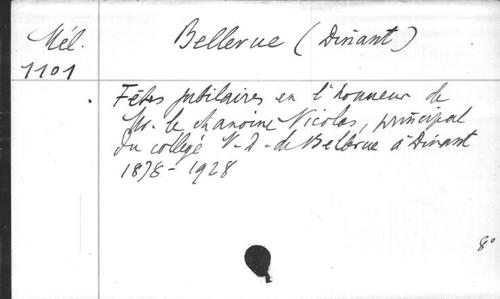 Mél. Bellevue (Dinant)
1101
Fêtes jubilaires en l'honneur de
Mr. le chanoine Nicolas, principal
du collège N-D-de Bellevue à Dinant
1878-1928
8°